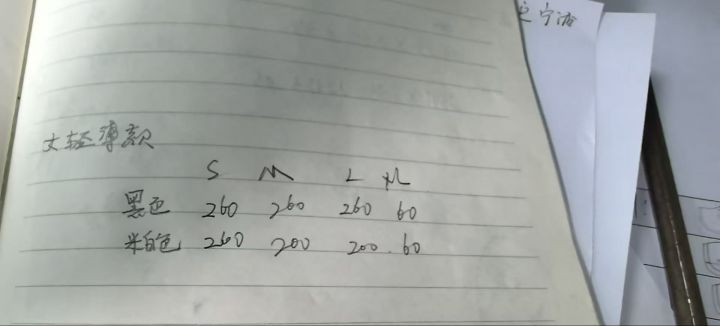 女轻薄款
S M L XL
黑色 260 260 260 60
米白色 260 200 200 60
宁波